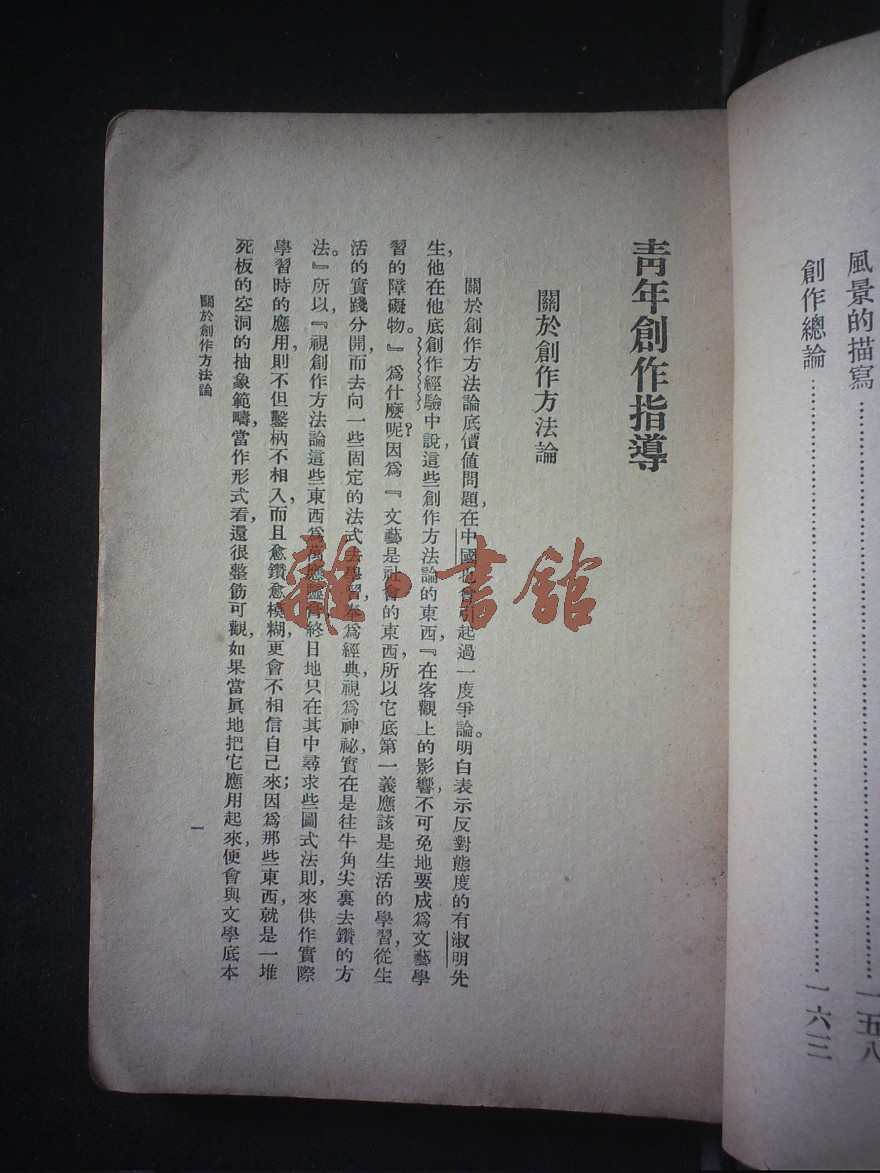 風景的描寫…………一五八
創作總論…………一六三
青年創作指導
關於創作方法論
關於創作方法論底價值問題,在中國也會引起過一度爭論。明白表示反對態度的有淑明先
生,他在他底創作經驗中說,這些創作方法論的東西,『在客觀上的影響,不可免地要成爲文藝學
習的障礙物。』爲什麽呢?因爲『文藝是社會的東西,所以它底第一義應該是生活的學習,從生
活的實踐分開,而去向一些固定的法式去學習,奉爲經典,視爲神祕,實在是往牛角尖裏去鑽的方
法。』所以,『視創作方法論這些東西爲萬應靈膏,終日地只在其中尋求些圖式法則,來供作實際
學習時的應用,則不但鑿枘不相入,而且愈鑽愈模糊,更會不相信自己來;因爲那些東西,就是一堆
死板的空洞的抽象範疇,當作形式看還很整飭可觀,如果當眞地把它應用起來,便會與文學底本
關於創作方法論
一
雜·書館